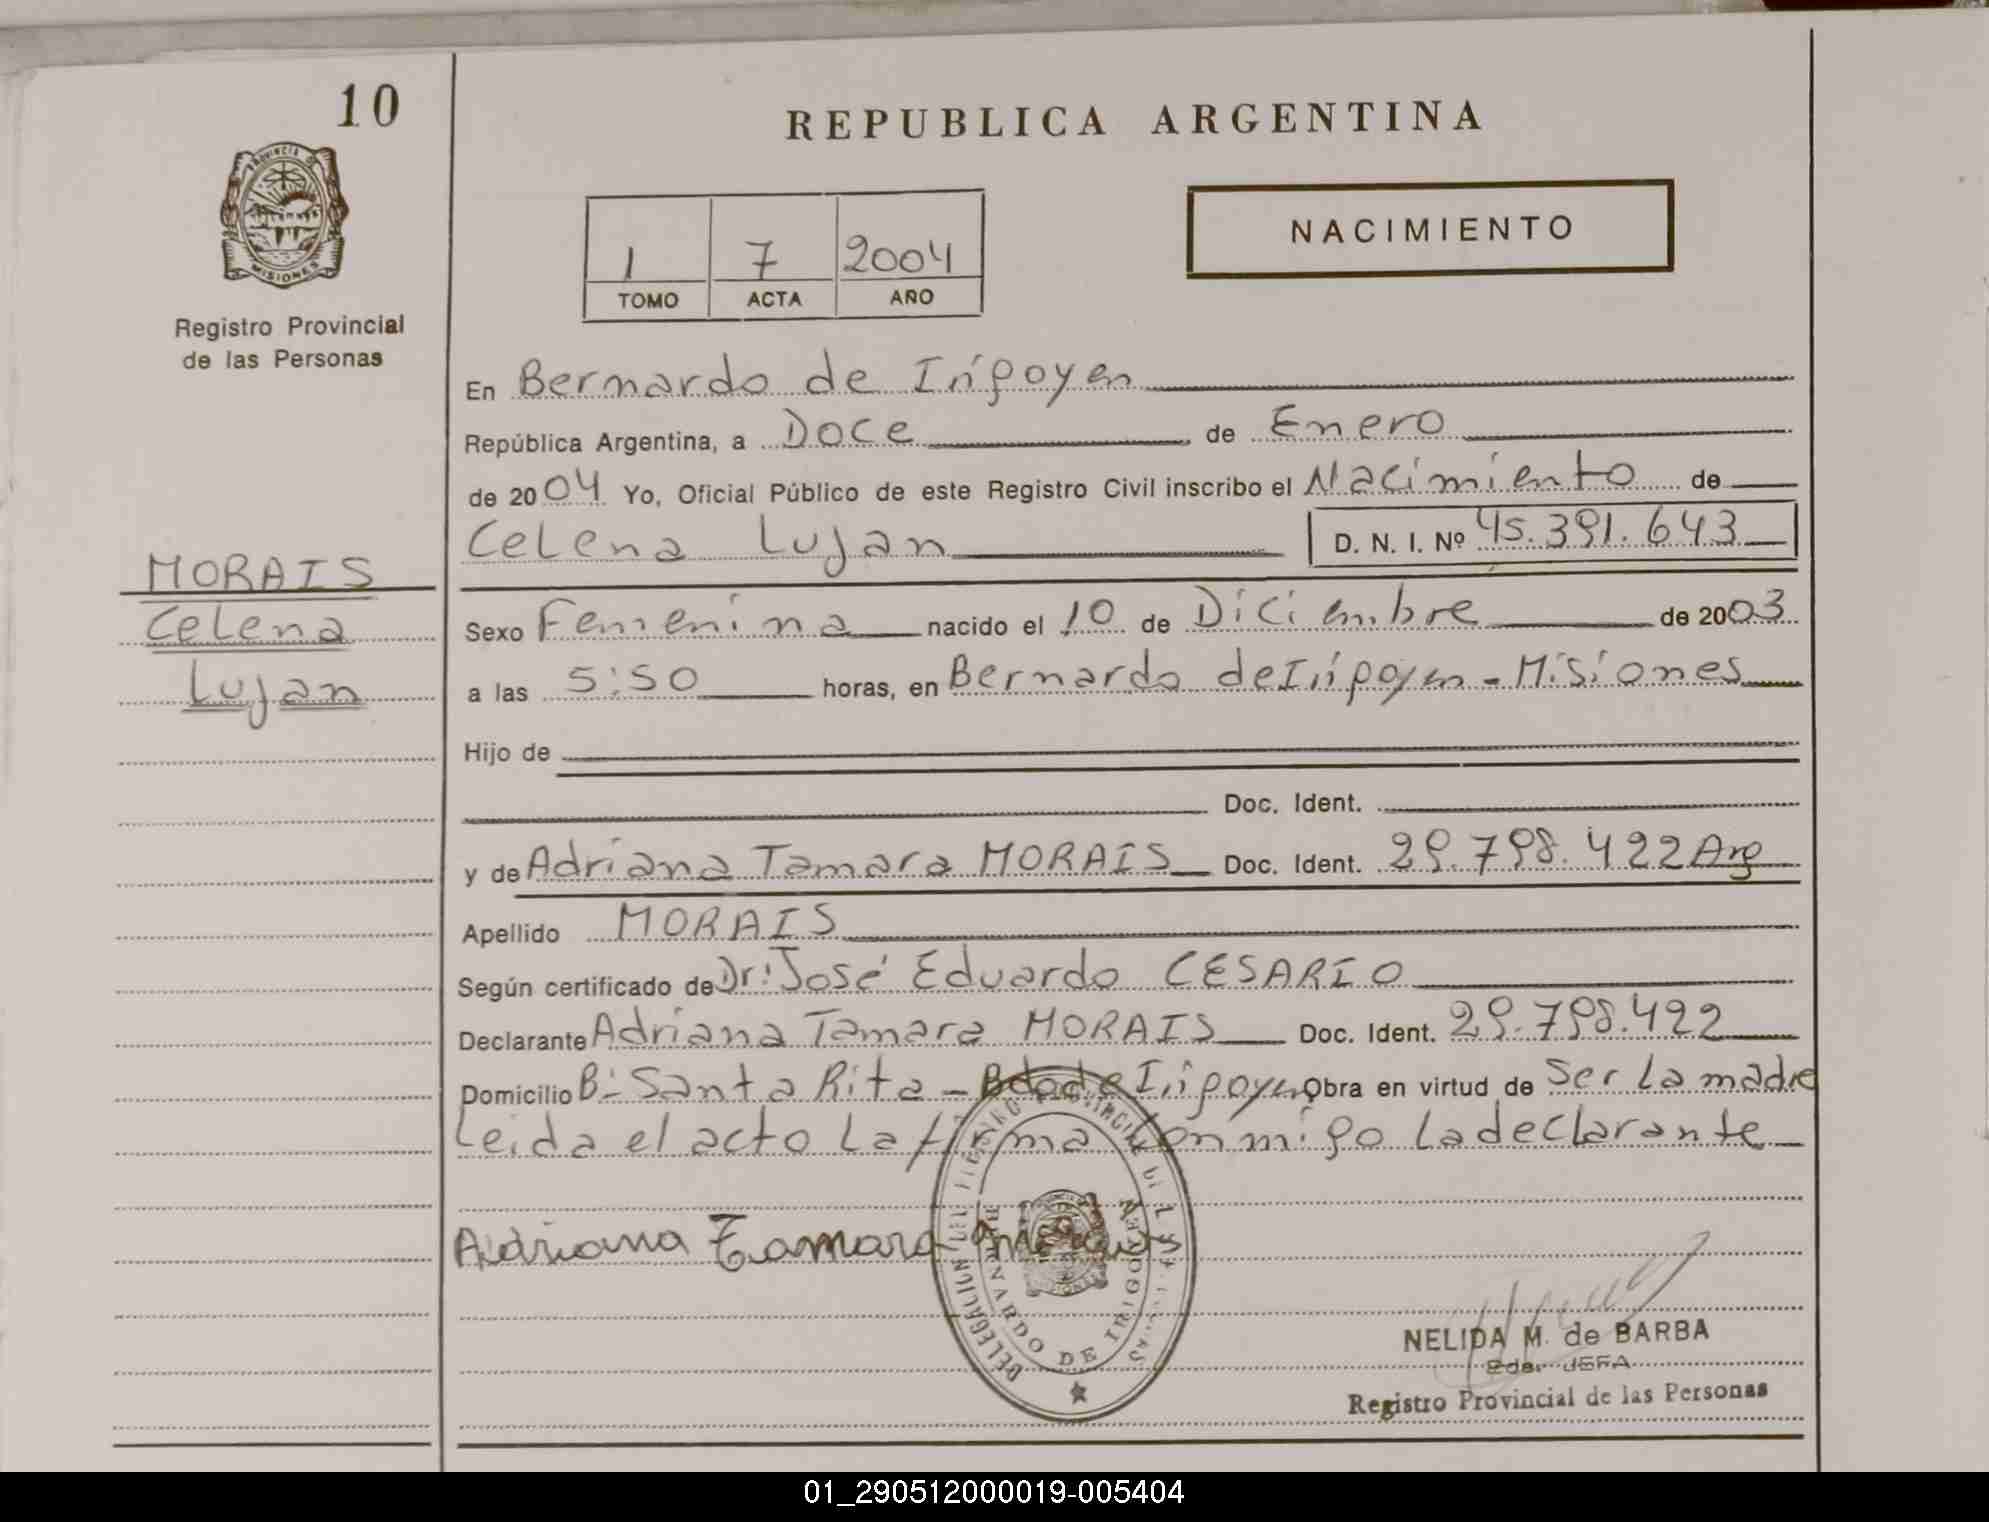 10
PROVINCIA DE
MISIONES
Registro Provincial
de las Personas
REPUBLICA ARGENTINA
1 7 2004
TOMO ACTA AÑO
NACIMIENTO
En Bernardo de Irigoyen
República Argentina, a Doce de Enero
de 2004 Yo, Oficial Público de este Registro Civil inscribo el Nacimiento de
Celena Lujan D. N. I. Nº 45.391.643
MORAIS
Celena
Lujan
Sexo Femenina nacido el 10 de Diciembre de 2003
a las 5:50 horas, en Bernardo de Irigoyen - Misiones
Hijo de
Doc. Ident.
y de Adriana Tamara MORAIS Doc. Ident. 29.798.422 Arg
Apellido MORAIS
Según certificado de Dr: José Eduardo CESARIO
Declarante Adriana Tamara MORAIS Doc. Ident. 29.798.422
Domicilio Bº Santa Rita - Bdo de Irigoyen Obra en virtud de Ser la madre
Leida el acto La firma Conmigo la declarante
Adriana Tamara
DELEGACION DEL REGISTRO PROVINCIAL DE LAS PERSONAS
BERNARDO DE IRIGOYEN
NELIDA M. de BARBA
2da. JEFA
Registro Provincial de las Personas
01_290512000019-005404